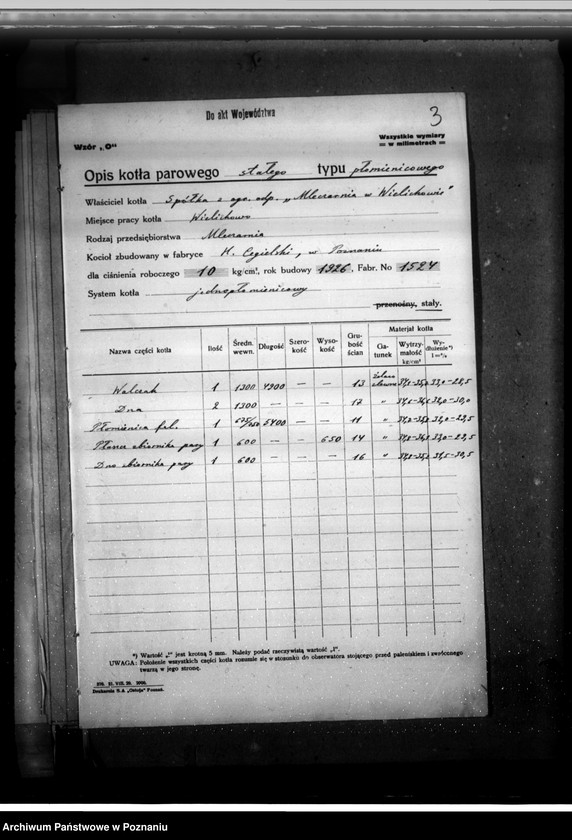 Do akt Województwa
3
Wzór „O"
Wszystkie wymiary
== w milimetrach ==
Opis kotła parowego stałego typu płomienicowego
Właściciel kotła Spółka z ogr. odp. „Mleczarnia w Wielichowie"
Miejsce pracy kotła Wielichowo
Rodzaj przedsiębiorstwa Mleczarnia
Kocioł zbudowany w fabryce H. Cegielski, w Poznaniu
dla ciśnienia roboczego 10 kg/cm², rok budowy 1926, Fabr. No 1524
System kotła jednopłomienicowy
przenośny, stały.
Nazwa części kotła Ilość Średn. wewn. Długość Szerokość Wysokość Grubość ścian Materjał kotła
Gatunek Wytrzymałość kg/cm² Wydłużenie*) l=%
Walczak 1 1300 4900 — — 13 żelazo zlewne
Dna 2 1300 — — 17 "
Płomienica fal. 1 675/750 5400 — — 11 "
Płaszcz zbiornika pary 1 600 — — 650 14 "
Dno zbiornika pary 1 600 — — 16 "
*) Wartość „l" jest krotną 5 mm. Należy podać rzeczywistą wartość „l".
UWAGA: Położenie wszystkich części kotła rozumie się w stosunku do obserwatora stojącego przed paleniskiem i zwróconego
twarzą w jego stronę.
Drukarnia S.A. „Ostoja" Poznań.
Archiwum Państwowe w Poznaniu